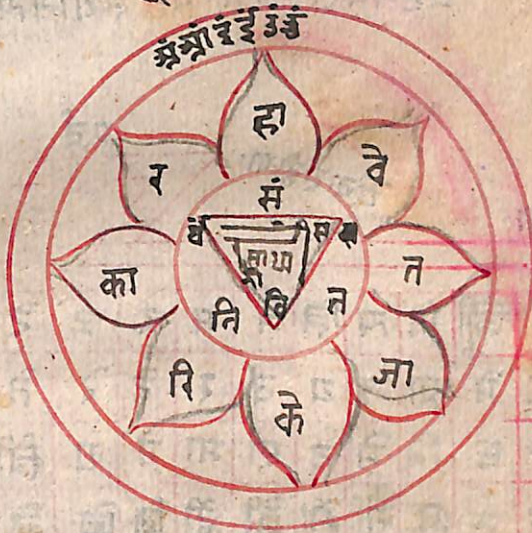 अं आं इं ईं उं ऊं
हा
वे
त
जा
के
रि
का
र
सं
त
ति
वि